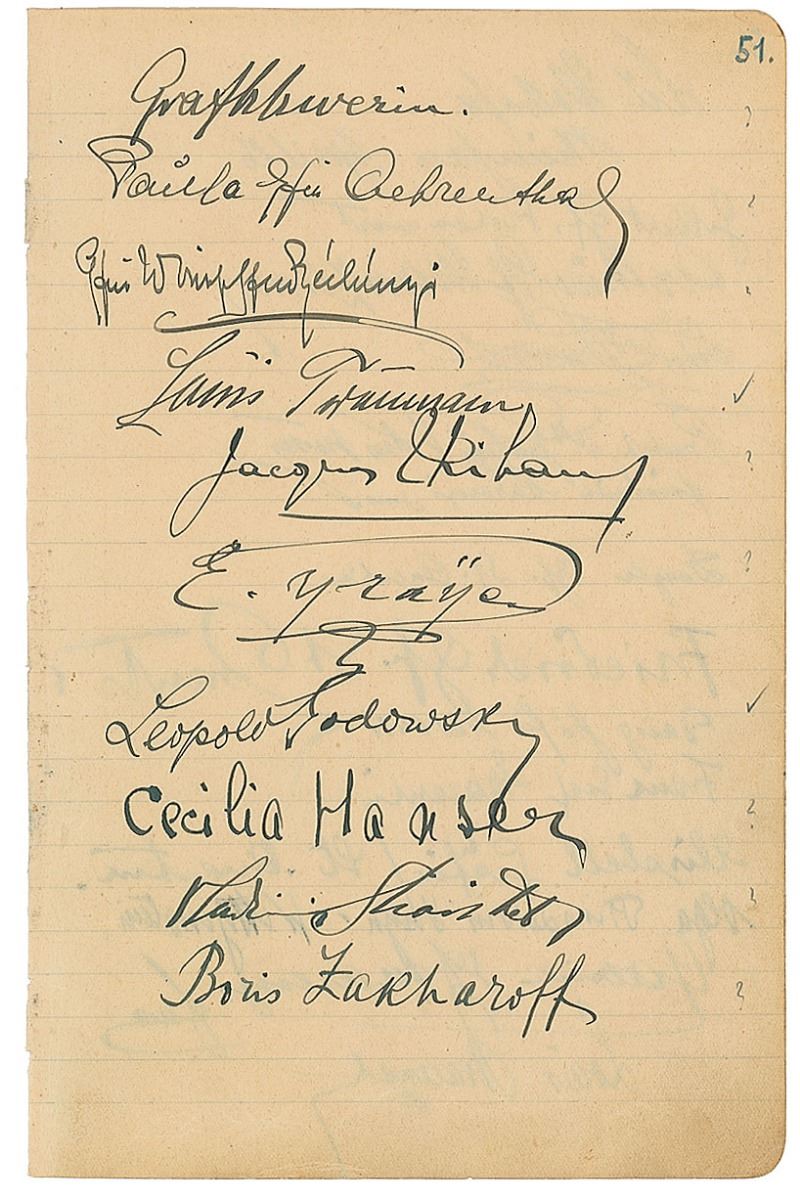 51.
Graf Schwerin.
Paula Gfin Aehrenthal
Gfin Wimpffen
Louis Treumann
Jacques
E. Ysaÿe
Leopold Godowsky
Cecilia Hansen
Boris Zakharoff